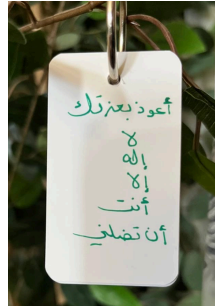 أعوذ بعزتك
لا
إله
إلا
أنت
أن تضلني